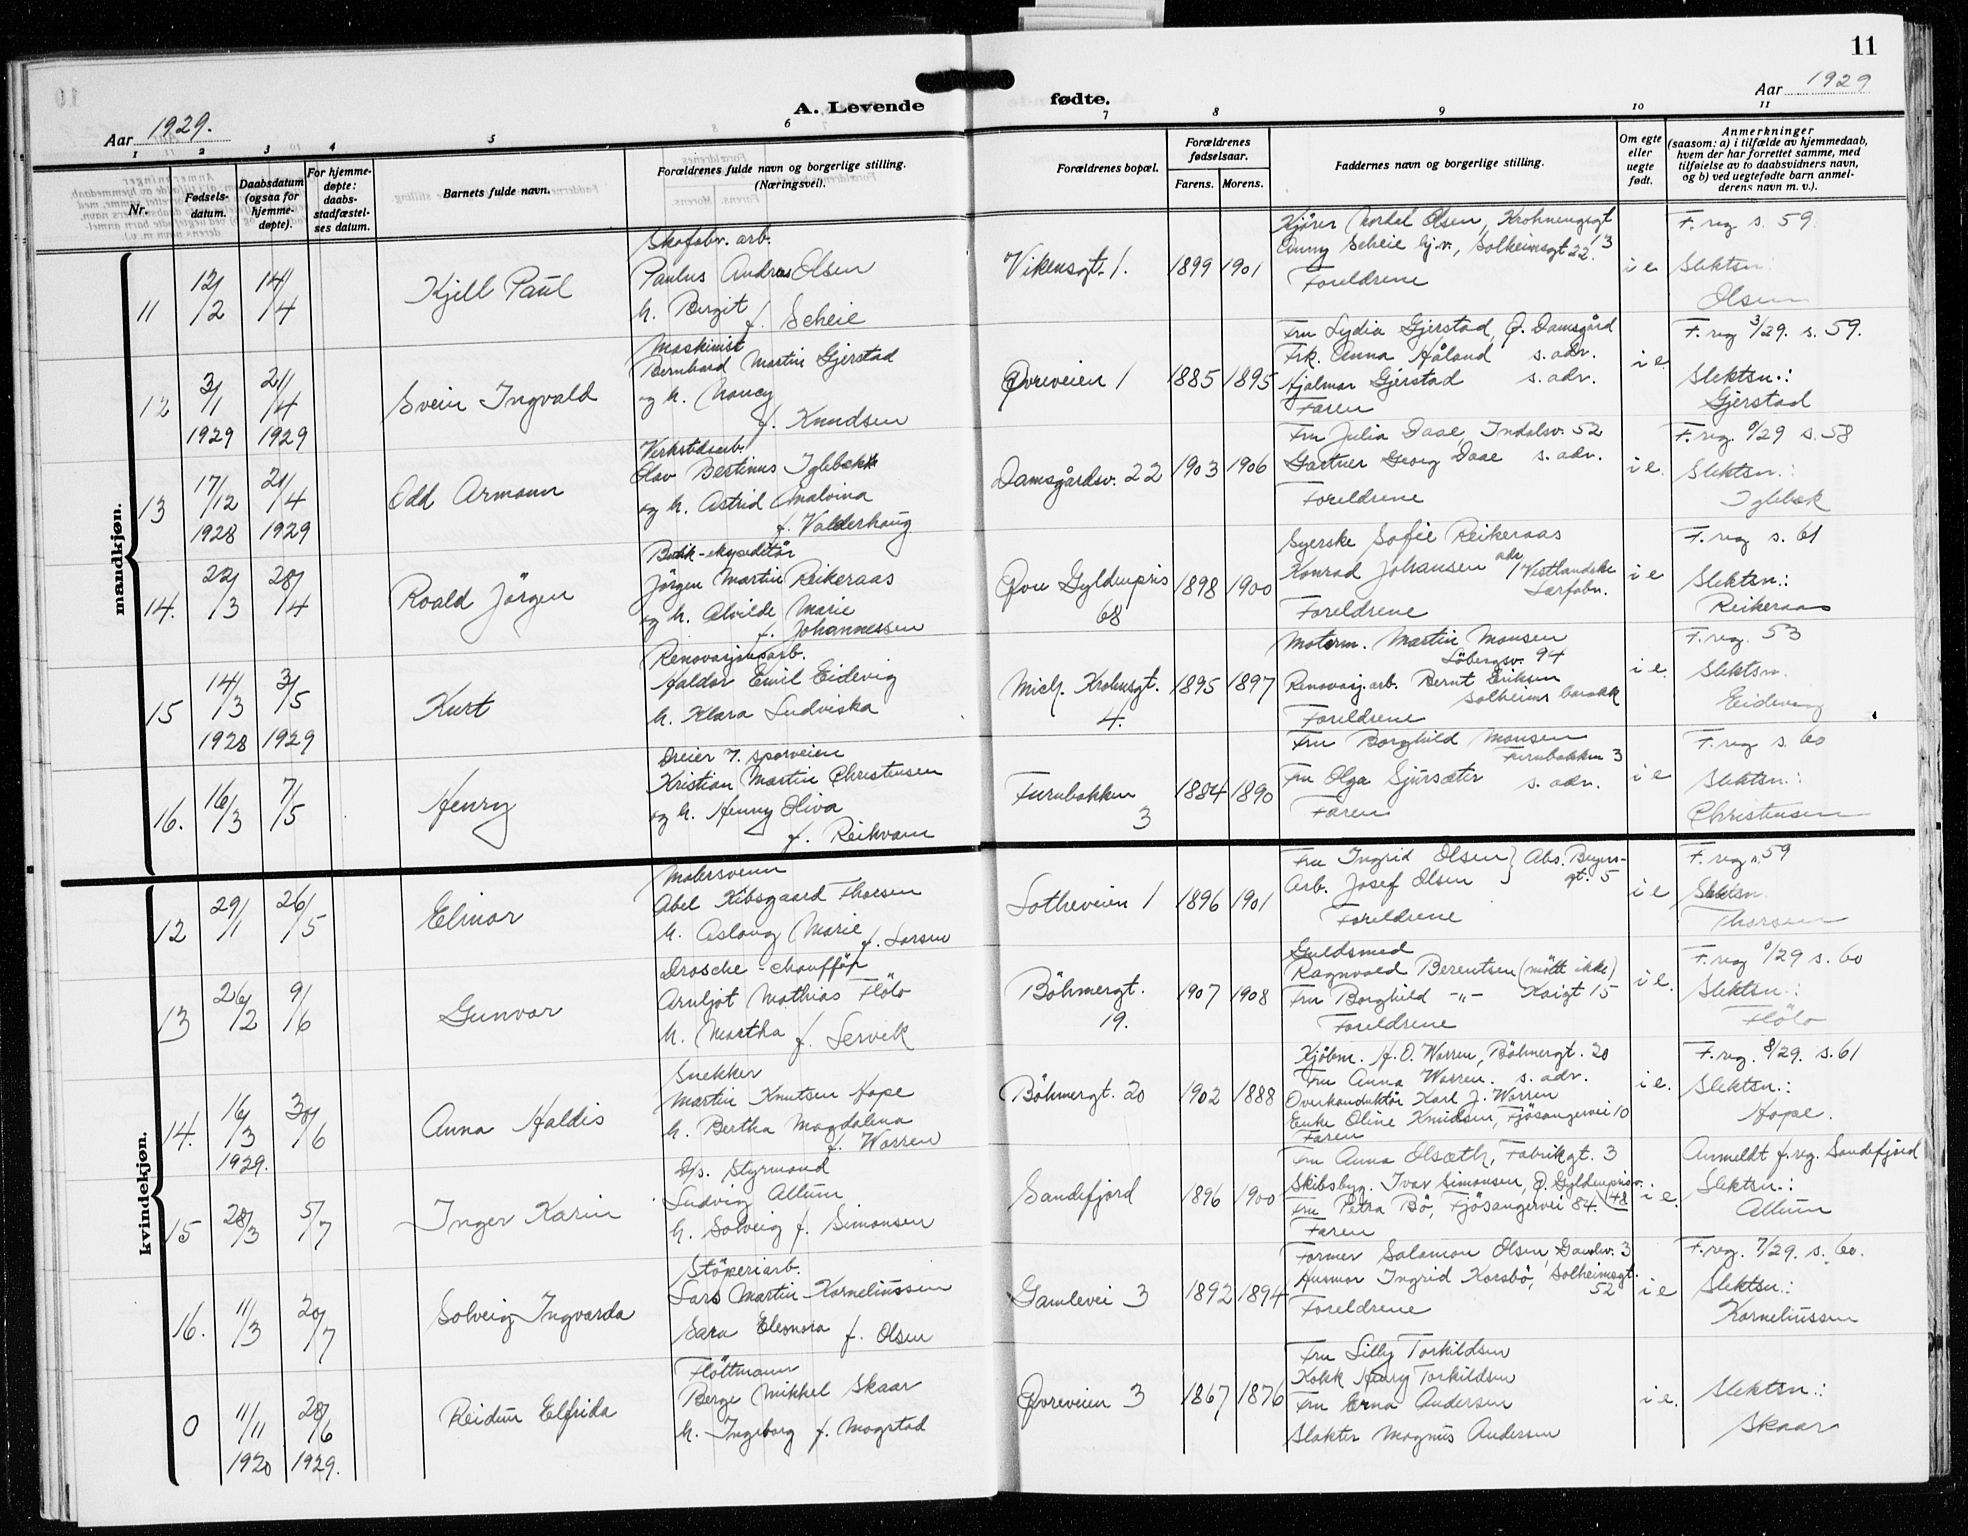 11
Aar 1929.
A. Levende
fødte.
Aar 1929
1 2 3 4 5 6 7 8 9 10 11
Nr.
Fødsels-
datum.
Daabsdatum
(ogsaa for
hjemme-
døpte).
For hjemme-
døpte:
daabs-
stadfæstel-
ses datum.
Barnets fulde navn.
Forældrenes fulde navn og borgerlige stilling.
(Næringsvei).
Forældrenes bopæl.
Forældrenes
fødselsaar.
Farens. Morens.
Faddernes navn og borgerlige stilling.
Om egte
eller
uegte
født.
Anmerkninger
(saasom: a) i tilfælde av hjemmedaab,
hvem der har forrettet samme, med
tilføielse av to daabsvidners navn,
og b) ved uegtefødte barn anmel-
derens navn m. v.).
mandkjøn.
11
12/2
14/4
Kjell Paul
Skofabr. arb.
Paulus Andreas Olsen
h. Bergit
f. Scheie
Vikensgt. 1.
1899 1901
Olsen, Krohnengsgt
13
Anny Scheie hj.v., Solheimsgt 22.
Foreldrene
i e
F. reg s. 59
Slektsn:
Olsen
12
3/1
1929
21/4
1929
Svein Ingvald
Maskinist
Bernhard Martin Gjerstad
og h. Nancy
f. Knudsen
Øvreveien 1
1885 1895
Fru Lydia Gjerstad, Ø. Damsgård
Frk. Anna Håland s. adr.
Hjalmar Gjerstad s. adr.
Faren
i e
F. reg 3/29. s. 59.
Slektsn.:
Gjerstad
13
17/12
1928
21/4
1929
Odd Armann
Verkstedsarb.
Olav Bertinus Iglebæk
og h. Astrid Malvina
f. Valderhaug
Damsgårdsv. 22
1903 1906
Fru Julia Daae, Indalsv. 52
Gartner Georg Daae s. adr.
Foreldrene
i e.
F. reg. 9/29 s. 58
Slektsn.:
Iglebæk
14.
22/3
28/4
Roald Jörgen
Butik-ekspeditör
Jörgen Martin Reikeraas
og h. Alvilde Marie
f. Johannessen
Øvre Gyldenpris
68
1898 1900
Syerske Sofie Reikeraas
Konrad Johansen adr. Vestlandske
Lærfabr.
Foreldrene
i e
F. reg s. 61
Slektsn.:
Reikeraas
15
14/3
1928
3/5
1929
Kurt
Renovasjonsarb.
Haldor Emil Eidevig
h. Klara Ludviska
Mich. Krohnsgt.
4.
1895 1897
Motorm. Martin Monsen
Löbergsv. 94
Renovasj. arb. Bernt Eriksen
Solheims barakk
Foreldrene
i e.
F. reg. 53
Slektsn.
Eidevig
16.
16/3
7/5
Henry
Dreier v. sporveien
Kristian Martin Christensen
og h. Henny Oliva
f. Reikvam
Furubakken
3
1884 1890
Fru Borghild Monsen
Furubakken 3
Fru Olga Sjursæter s. adr.
Faren
i e
F. reg s. 60
Slektsn.:
Christensen
kvindekjøn.
12
29/1
26/5
Elinor
Malersvenn
Abel Kibsgaard Thorsen
h. Aslaug Marie
f. Larsen
Lotheveien 1
1896 1901
Fru Ingrid Olsen } Abs. Beyers-
Arb. Josef Olsen gt. 5
Foreldrene
i e
F. reg s. 59
Slektsn
Thorsen
13
26/2
9/6
Gunvor
Drosche-chaufför
Arnljot Mathias Flölo
h. Martha f. Lervik
Böhmergt.
19.
1907 1908
Guldsmed
Ragnvald Berentsen (mött ikke)
Fru Borghild -"- Kaigt 15
Foreldrene
i e.
F. reg 9/29 s. 60
Slektsn.:
Flölo
14.
16/3
1929.
30/6
Anna Haldis
Snekker
Martin Knutsen Hope
h. Bertha Magdalena
f. Warren
Böhmergt. 20
1902 1888
Kjöbm. H. O. Warren, Böhmergt. 20
Fru Anna Warren. s. adr.
Overkonduktör Karl J. Warren
Enke Oline Knudsen, Fjösangervei 10
Faren
i e.
F. reg. 8/29. s. 61
Slektsn.:
Hope.
15
28/3
5/7
Inger Karin
D/s. Styrmand
Ludvig Allum
h. Solveig f. Simonsen
Sandefjord
1896 1900
Fru Anna Olsæth, Fabrikgt. 3
Skibsbyg. Ivar Simonsen, Ö. Gyldenprisv.
48
Fru Petra Bö, Fjösangervei 84.
Faren
i e.
Anmeldt f. reg. Sandefjord
Slektsn.:
Allum
16.
11/3
20/7
Solveig Ingvarda
Stöperiarb.
Lars Martin Korneliussen
Sara Eleonora f. Olsen
Gamlevei 3
1892 1894
Former Salamon Olsen, Gamlev. 3
Husmor Ingrid Korsbö, Solheimsgt.
52
Foreldrene
i e
F. reg. 7/29. s. 60.
Slektsn.:
Korneliussen
0
11/11
1920
28/6
1929.
Reidun Elfrida
Flöttmann
Berge Mikkel Skaar
h. Ingeborg f. Mogstad
Øvreveien 3
1867 1876
Fru Lilly Torkildsen
Kokk Henry Torkildsen
Fru Erna Andersen
Slakter Magnus Andersen
i e.
Slektsn.:
Skaar